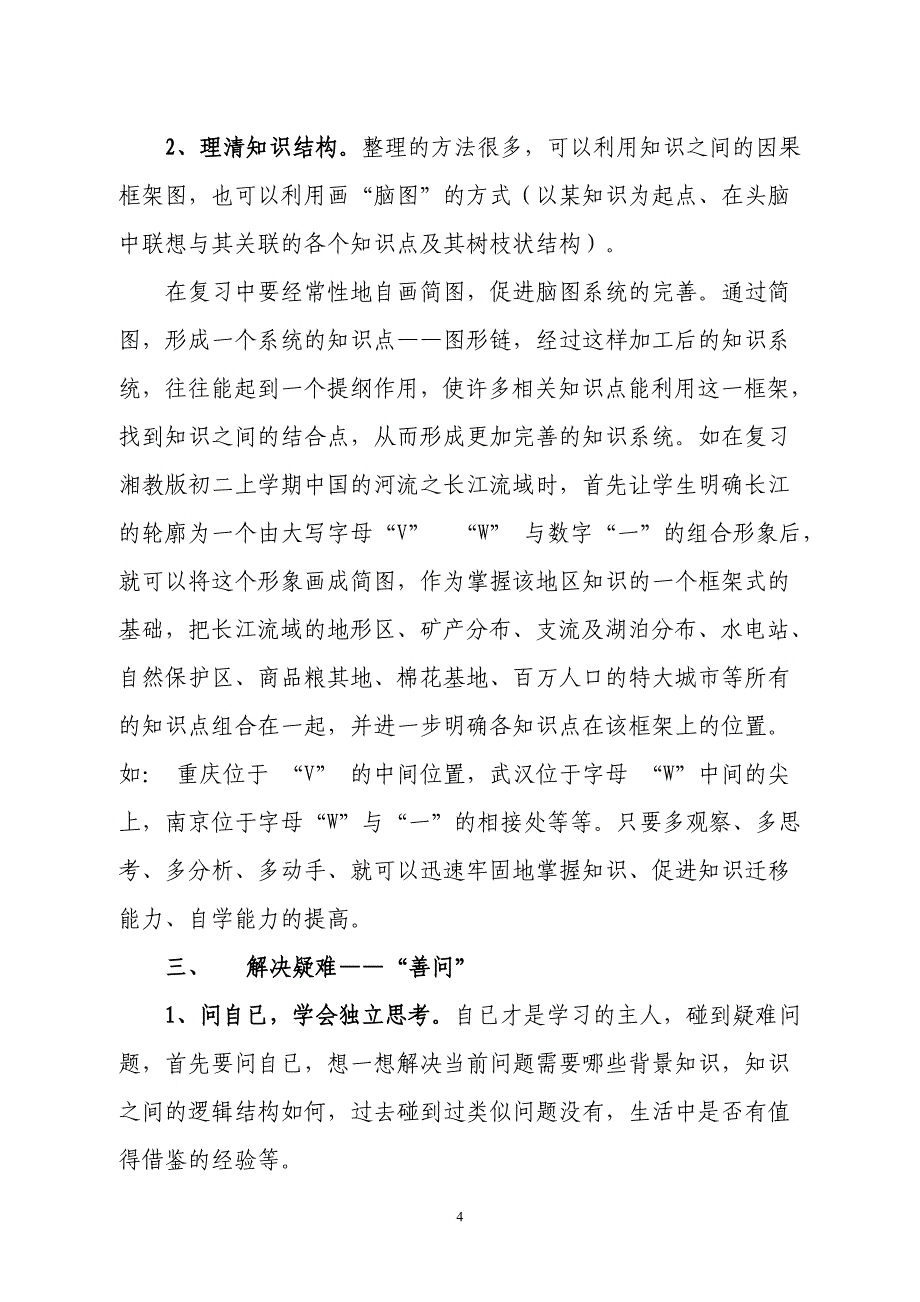 2、理清知识结构。整理的方法很多，可以利用知识之间的因果
框架图，也可以利用画“脑图”的方式（以某知识为起点、在头脑
中联想与其关联的各个知识点及其树枝状结构）。
在复习中要经常性地自画简图，促进脑图系统的完善。通过简
图，形成一个系统的知识点——图形链，经过这样加工后的知识系
统，往往能起到一个提纲作用，使许多相关知识点能利用这一框架，
找到知识之间的结合点，从而形成更加完善的知识系统。如在复习
湘教版初二上学期中国的河流之长江流域时，首先让学生明确长江
的轮廓为一个由大写字母“V”  “W” 与数字“一”的组合形象后，
就可以将这个形象画成简图，作为掌握该地区知识的一个框架式的
基础，把长江流域的地形区、矿产分布、支流及湖泊分布、水电站、
自然保护区、商品粮其地、棉花基地、百万人口的特大城市等所有
的知识点组合在一起，并进一步明确各知识点在该框架上的位置。
如： 重庆位于 “V” 的中间位置，武汉位于字母 “W”中间的尖
上，南京位于字母“W”与“一”的相接处等等。只要多观察、多思
考、多分析、多动手、就可以迅速牢固地掌握知识、促进知识迁移
能力、自学能力的提高。
三、  解决疑难——“善问”
1、问自已，学会独立思考。自已才是学习的主人，碰到疑难问
题，首先要问自已，想一想解决当前问题需要哪些背景知识，知识
之间的逻辑结构如何，过去碰到过类似问题没有，生活中是否有值
得借鉴的经验等。
4